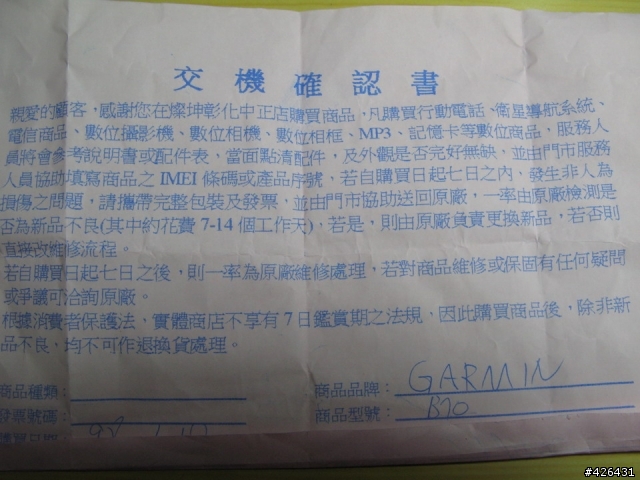 交機確認書
親愛的顧客，感謝您在燦坤彰化中正店購買商品，凡購買行動電話、衛星導航系統、
電信商品、數位攝影機、數位相機、數位相框、MP3、記憶卡等數位商品，服務人
員將會參考說明書或配件表，當面點清配件，及外觀是否完好無缺，並由門市服務
人員協助填寫商品之 IMEI 條碼或產品序號，若自購買日起七日之內，發生非人為
損傷之問題，請攜帶完整包裝及發票，並由門市協助送回原廠，一率由原廠檢測是
否為新品不良(其中約花費 7-14 個工作天)，若是，則由原廠負責更換新品，若否則
直接改維修流程。
若自購買日起七日之後，則一率為原廠維修處理，若對商品維修或保固有任何疑問
或爭議可洽詢原廠。
根據消費者保護法，實體商店不享有 7 日鑑賞期之法規，因此購買商品後，除非新
品不良，均不可作退換貨處理。
商品種類：
商品品牌：GARMIN
發票號碼：
商品型號：
購買日期：
#426431